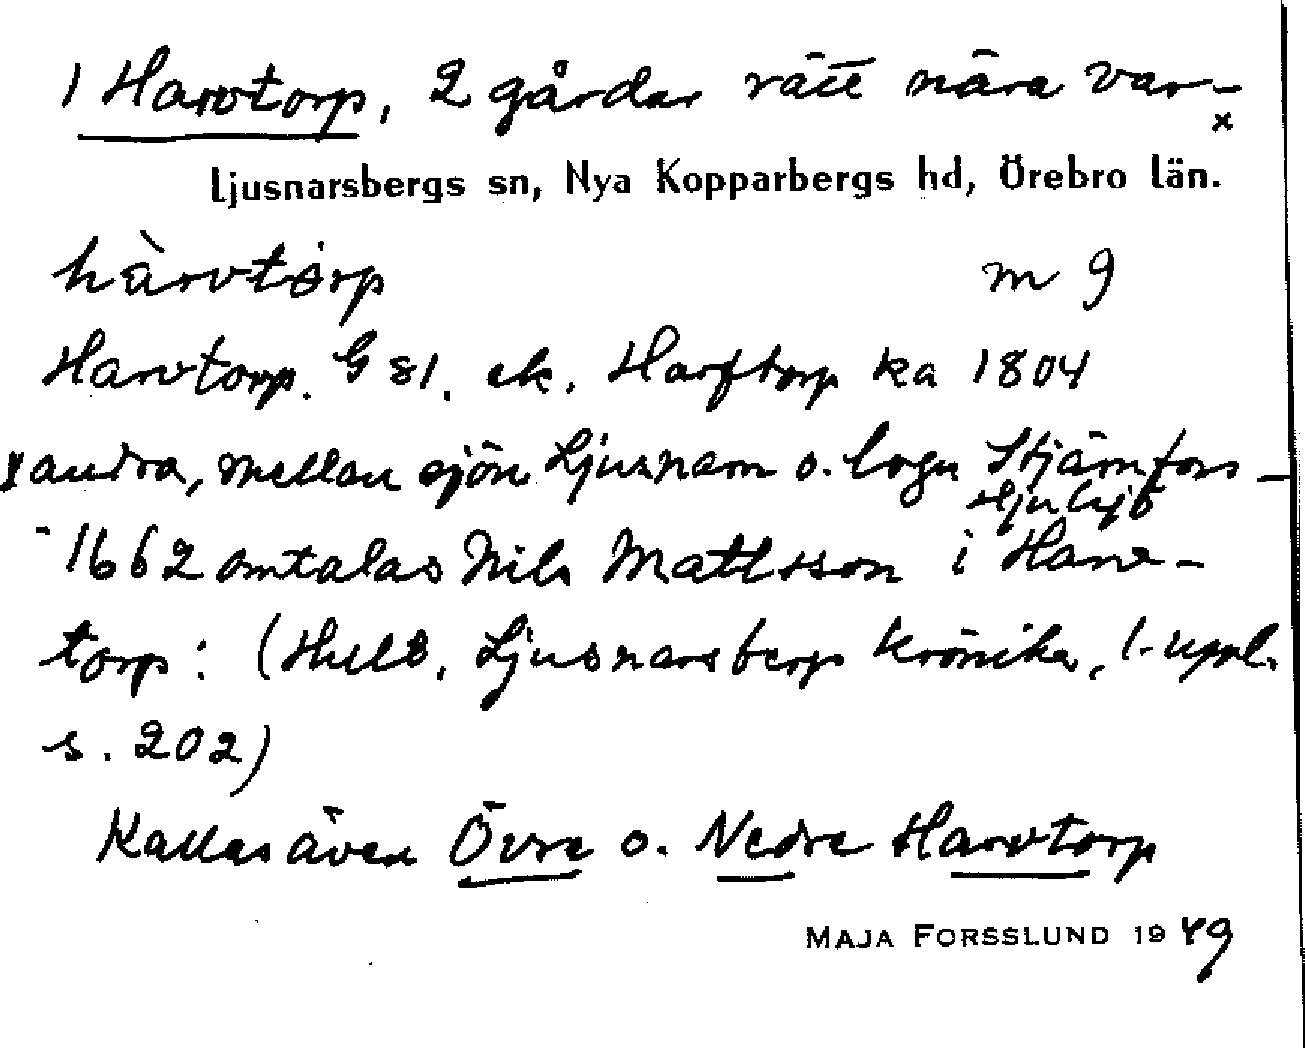 1 Harvtorp, 2 gårdar rätt nära var-
x
Ljusnarsbergs sn, Nya Kopparbergs hd, Örebro län.
hàrvtórp m 9
Harvtorp. G 81. ek. Harftorp ka 1804
x andra, mellan sjön Ljusnarn o. byn Stjärnfors -
-1662 omtalas Nils Mattsson i Harv-
torp: (Hult, Ljusnarsbergs krönika, 1. uppl.
s. 202)
Kallas även Övre o. Nedre Harvtorp
MAJA FORSSLUND 1949